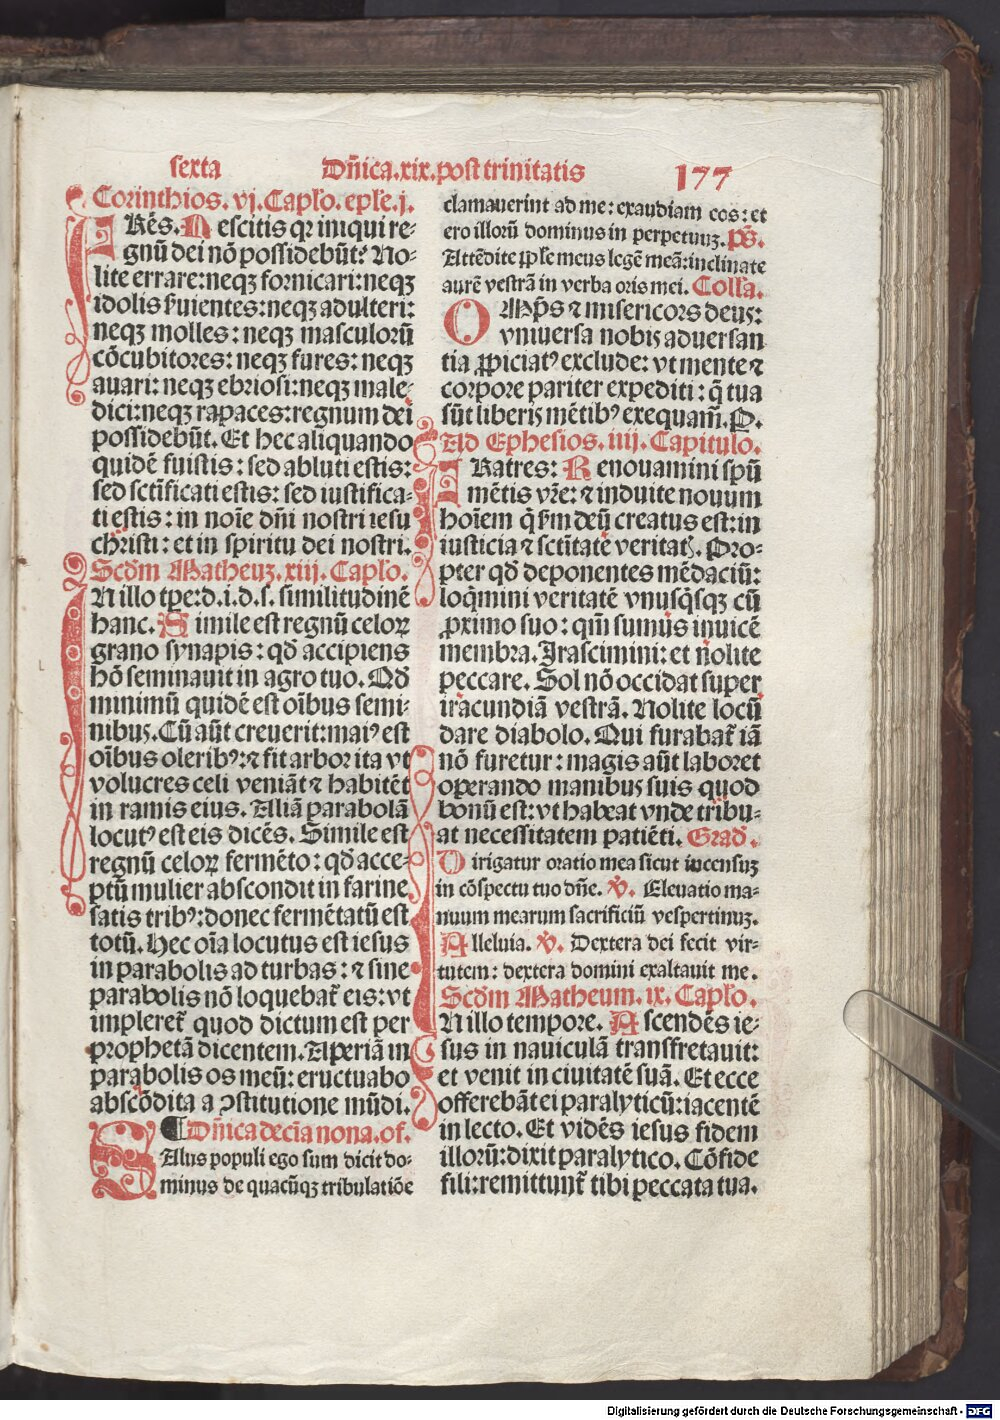 sexta Dñica.xix.post trinitatis 177
Corinthios. vj. Caplo. eple. j.
FRēs. Nescitis qꝛ iniqui re-
gnū dei nō possidebūt? No-
lite errare: neqꝫ fornicari: neqꝫ
idolis ẜuientes: neqꝫ adulteri:
neqꝫ molles: neqꝫ masculorū
cōcubitores: neqꝫ fures: neqꝫ
auari: neqꝫ ebriosi: neqꝫ male-
dici: neqꝫ rapaces: regnum dei
possidebūt. Et hec aliquando
quidē fuistis: sed abluti estis:
sed sctīficati estis: sed iustifica-
ti estis: in noīe dñi nostri iesu
christi: et in spiritu dei nostri.
Scdm Matheuꝫ. xiij. Caplo.
IN illo tpe: d. i. d. s. similitudinē
hanc. Simile est regnū celoꝝ
grano synapis: qđ accipiens
hō seminauit in agro tuo. Qđ
minimū quidē est oībus semi-
nibus. Cū aūt creuerit: maiꝰ est
oībus oleribꝰ: ⁊ fit arbor ita vt
volucres celi veniāt ⁊ habitēt
in ramis eius. Aliā parabolā
locutꝰ est eis dicēs. Simile est
regnū celoꝝ fermēto: qđ acce-
ptū mulier abscondit in farine
satis tribꝰ: donec fermētatū est
totū. Hec oīa locutus est iesus
in parabolis ad turbas: ⁊ sine
parabolis nō loquebat̄ eis: vt
impleret̄ quod dictum est per
prophetā dicentem. Aperiā in
parabolis os meū: eructuabo
abscōdita a ꝯstitutione mūdi.
¶ Dñica decīa nona. of.
SAlus populi ego sum dicit do-
minus de quacūqꝫ tribulatiōe
clamauerint ad me: exaudiam eos: et
ero illorū dominus in perpetuuꝫ. Ps̄.
Attēdite pple meus legē meā: inclinate
aurē vestrā in verba oris mei. Colla.
OMps̄ ⁊ misericors deus:
vniuersa nobis aduersan
tia ꝓpiciatꝰ exclude: vt mente ⁊
corpore pariter expediti: q̄ tua
sūt liberis mētibꝰ exequam̄. P.
Ad Ephesios. iiij. Capitulo.
FRatres: Renouamini spū
mētis vr̄e: ⁊ induite nouum
hoīem q̄ ẜm deū creatus est: in
iusticia ⁊ sctītatē veritatꝭ. Pro-
pter qđ deponentes mēdaciū:
loq̄mini veritatē vnusq̄sqꝫ cū
ꝓximo suo: qm̄ sumus inuicē
membra. Irascimini: et nolite
peccare. Sol nō occidat super
iracundiā vestrā. Nolite locū
dare diabolo. Qui furabat̄ iā
nō furetur: magis aūt laboret
operando manibus suis quod
bonū est: vt habeat vnde tribu-
at necessitatem patiēti. Grad̄.
Dirigatur oratio mea sicut incensuꝫ
in cōspectu tuo dñe. ℣. Eleuatio ma-
nuum mearum sacrificiū vespertinuꝫ.
Alleluia. ℣. Dextera dei fecit vir-
tutem: dextera domini exaltauit me.
Scdm Matheum. ix. Caplo.
IN illo tempore. Ascendēs ie-
sus in nauiculā transfretauit:
et venit in ciuitatē suā. Et ecce
offerebāt ei paralyticū: iacentē
in lecto. Et vidēs iesus fidem
illorū: dixit paralytico. Cōfide
fili: remittunt̄ tibi peccata tua.
Digitalisierung gefördert durch die Deutsche Forschungsgemeinschaft - DFG